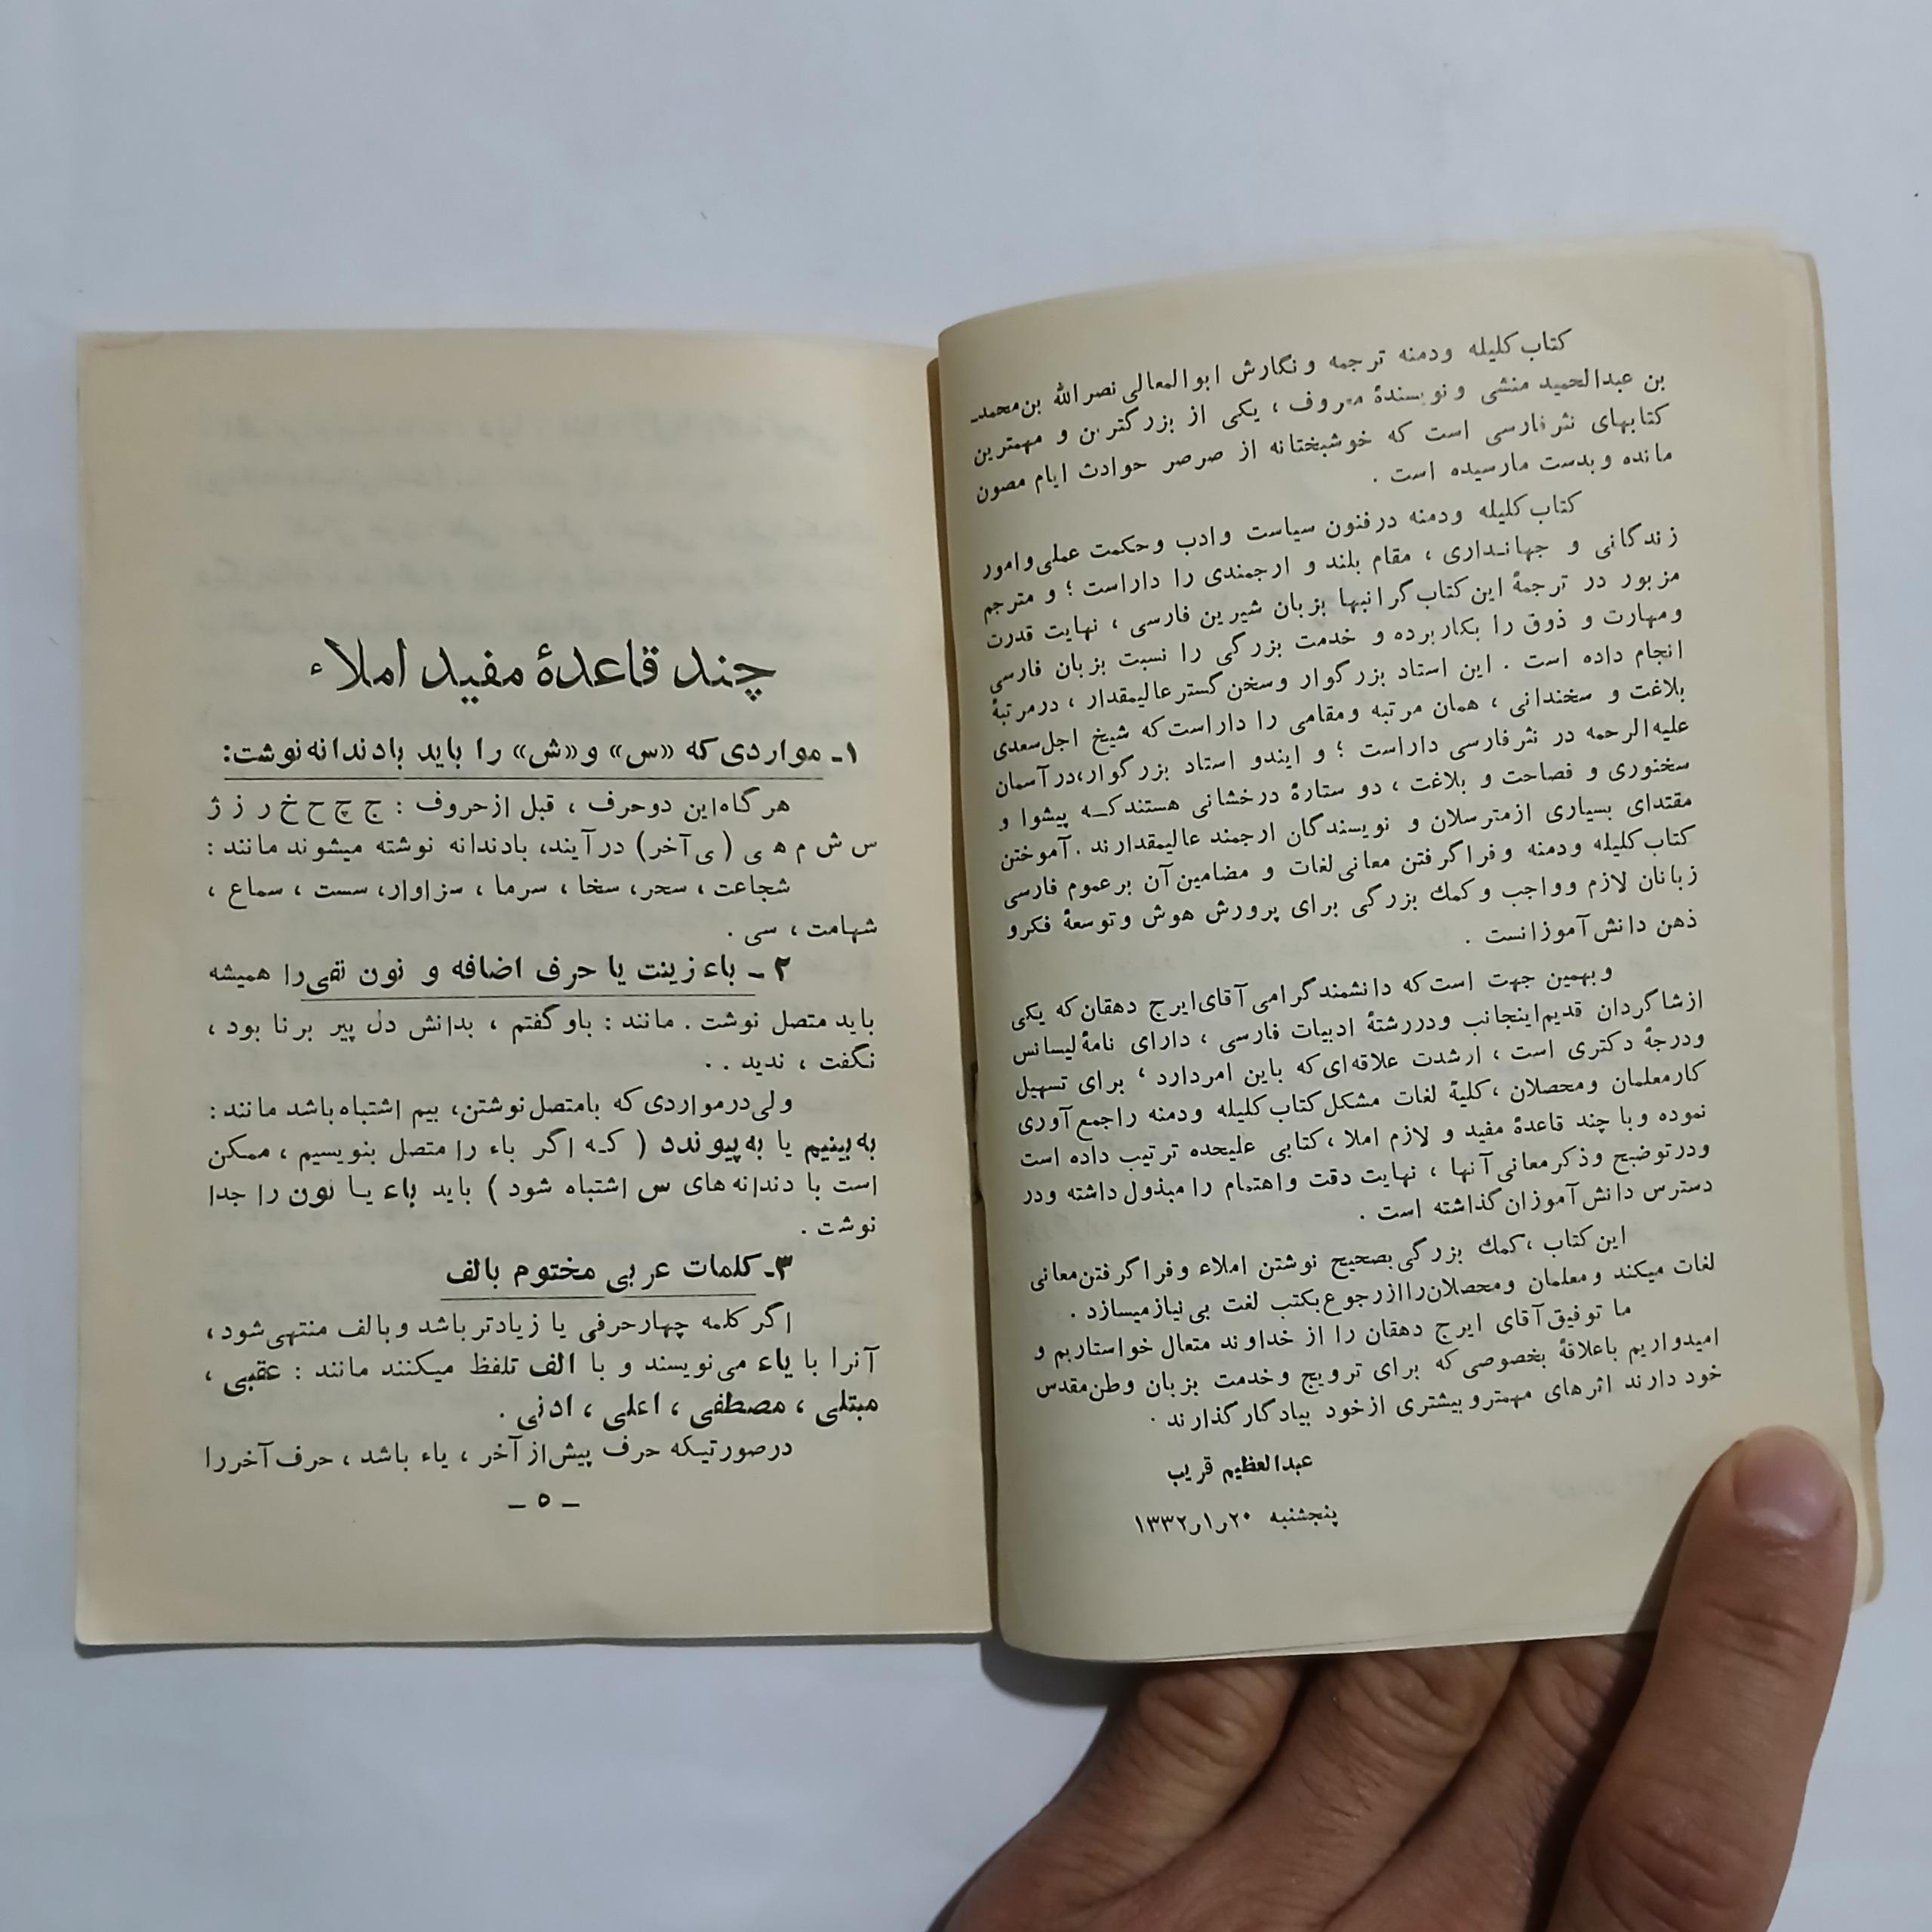 کتاب کلیله ودمنه ترجمه ونگارش ابوالمعالی نصرالله بن‌محمد‌ـ
بن عبدالحمید منشی ونویسندهٔ معروف ، یکی از بزرگترین و مهمترین
کتابهای نثرفارسی است که خوشبختانه از صرصر حوادث ایام مصون
مانده وبدست مارسیده است .
کتاب کلیله ودمنه درفنون سیاست وادب وحکمت عملی‌وامور
زندگانی و جهانداری ، مقام بلند و ارجمندی را داراست ؛ و مترجم
مزبور در ترجمهٔ این کتاب گرانبها بزبان شیرین فارسی ، نهایت قدرت
ومهارت و ذوق را بکاربرده و خدمت بزرگی را نسبت بزبان فارسی
انجام داده است . این استاد بزرگوار وسخن گسترعالیمقدار ، درمرتبهٔ
بلاغت و سخندانی ، همان مرتبه ومقامی را داراست که شیخ اجل‌سعدی
علیه‌الرحمه در نثرفارسی داراست ؛ و ایندو استاد بزرگوار،درآسمان
سخنوری و فصاحت و بلاغت ، دو ستارهٔ درخشانی هستند که پیشوا و
مقتدای بسیاری ازمترسلان و نویسندگان ارجمند عالیمقدارند . آموختن
کتاب کلیله ودمنه وفراگرفتن معانی لغات و مضامین آن برعموم فارسی
زبانان لازم وواجب وکمك بزرگی برای پرورش هوش وتوسعهٔ فکرو
ذهن دانش آموزانست .
وبهمین جهت است که دانشمندگرامی آقای ایرج دهقان که یکی
ازشاگردان قدیم‌اینجانب ودررشتهٔ ادبیات فارسی ، دارای نامهٔ لیسانس
ودرجهٔ دکتری است ، ازشدت علاقه‌ای که باین امردارد ، برای تسهیل
کارمعلمان ومحصلان ،کلیهٔ لغات مشکل کتاب کلیله ودمنه راجمع آوری
نموده وبا چند قاعدهٔ مفید و لازم املا ،کتابی علیحده ترتیب داده است
ودرتوضیح وذکرمعانی آنها ، نهایت دقت واهتمام را مبذول داشته ودر
دسترس دانش آموزان گذاشته است .
این کتاب ،کمك بزرگی بصحیح نوشتن املاء وفراگرفتن معانی
لغات میکند ومعلمان ومحصلان‌راازرجوع بکتب لغت بی‌نیازمیسازد .
ما توفیق آقای ایرج دهقان را از خداوند متعال خواستاریم و
امیدواریم باعلاقهٔ بخصوصی که برای ترویج وخدمت بزبان وطن‌مقدس
خود دارند اثرهای مهمتروبیشتری ازخود بیادگارگذارند .
عبدالعظیم قریب
پنجشنبه ۲۰ر۱ر۱۳۳۲
چند قاعدهٔ مفید املاء
۱ـ مواردی‌که «س» و«ش» را باید بادندانه نوشت:
هرگاه‌این دوحرف ، قبل ازحروف : ج چ ح خ ر ز ژ
س ش م ه ی (ی آخر) درآیند، بادندانه نوشته میشوند مانند :
شجاعت ، سحر، سخا ، سرما ، سزاوار، سست ، سماع ،
شهامت ، سی .
۲ ـ باء زینت یا حرف اضافه و نون نفی‌را همیشه
باید متصل نوشت . مانند : باوگفتم ، بدانش دل پیر برنا بود ،
نگفت ، ندید . .
ولی‌درمواردی که بامتصل نوشتن، بیم اشتباه‌باشد مانند :
به‌بینیم یا به‌پیوندد ( که اگر باء را متصل بنویسیم ، ممکن
است با دندانه‌های س اشتباه شود ) باید باء یا نون را جدا
نوشت .
۳ـ کلمات عربی مختوم بالف
اگرکلمه چهارحرفی یا زیادتر باشد وبالف منتهی‌شود ،
آنرا با یاء می‌نویسند و با الف تلفظ میکنند مانند : عقبی ،
مبتلی ، مصطفی ، اعلی ، ادنی .
درصورتیکه حرف پیش‌ازآخر ، یاء باشد ، حرف آخررا
ـ ۵ ـ